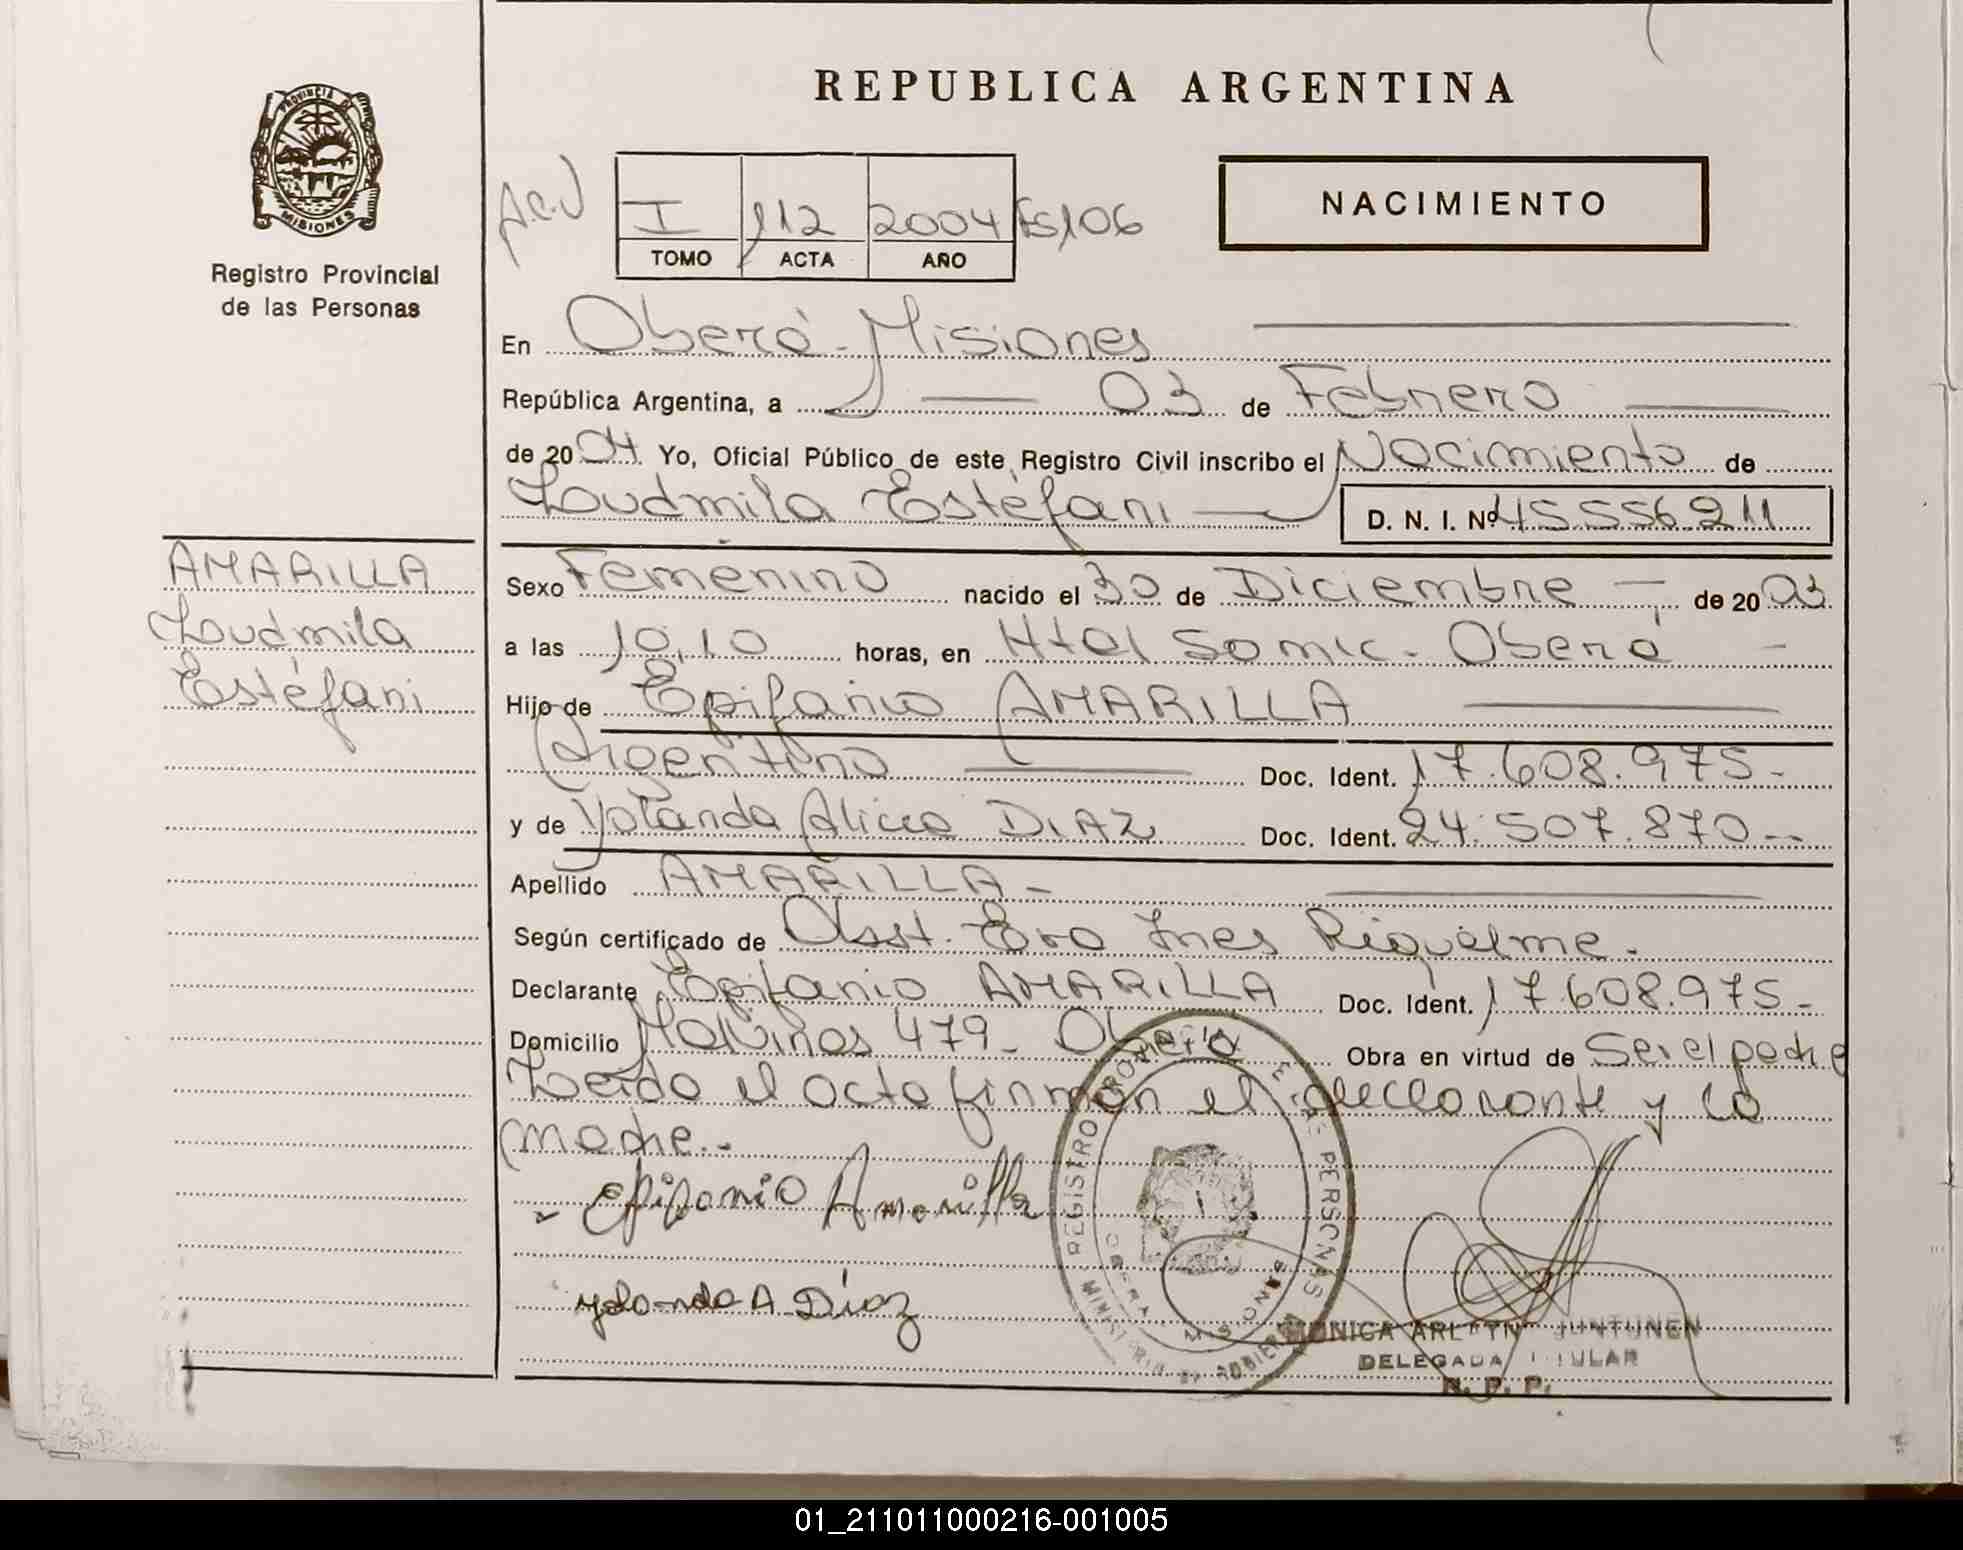 REPUBLICA ARGENTINA
PROVINCIA DE
MISIONES
Registro Provincial
de las Personas
I 112 2004 Fs 106
TOMO ACTA AÑO
NACIMIENTO
En Oberá - Misiones
República Argentina, a 03 de Febrero
de 2004 Yo, Oficial Público de este Registro Civil inscribo el Nacimiento de
Loudmila Estéfani D. N. I. Nº 45556211
AMARILLA
Loudmila
Estéfani
Sexo Femenino nacido el 30 de Diciembre de 2003
a las 10,10 horas, en Htal Samic - Oberá
Hijo de Epifanio AMARILLA
Argentino Doc. Ident. 17.608.975-
y de Yolanda Alicia DIAZ Doc. Ident. 24.507.870-
Apellido AMARILLA-
Según certificado de Obst. Eva Ines Riquelme.
Declarante Epifanio AMARILLA Doc. Ident. 17.608.975-
Domicilio Malvinas 479- Oberá Obra en virtud de Ser el padre
Leido el acta firman el declarante y la
madre.-
Epifanio Amarilla
Yolanda A Díaz
REGISTRO PROVINCIAL DE PERSONAS
MINISTERIO DE GOBIERNO
OBERA
MISIONES
MONICA ARLETTN JUNTUNEN
DELEGADA TITULAR
R. P. P.
01_211011000216-001005